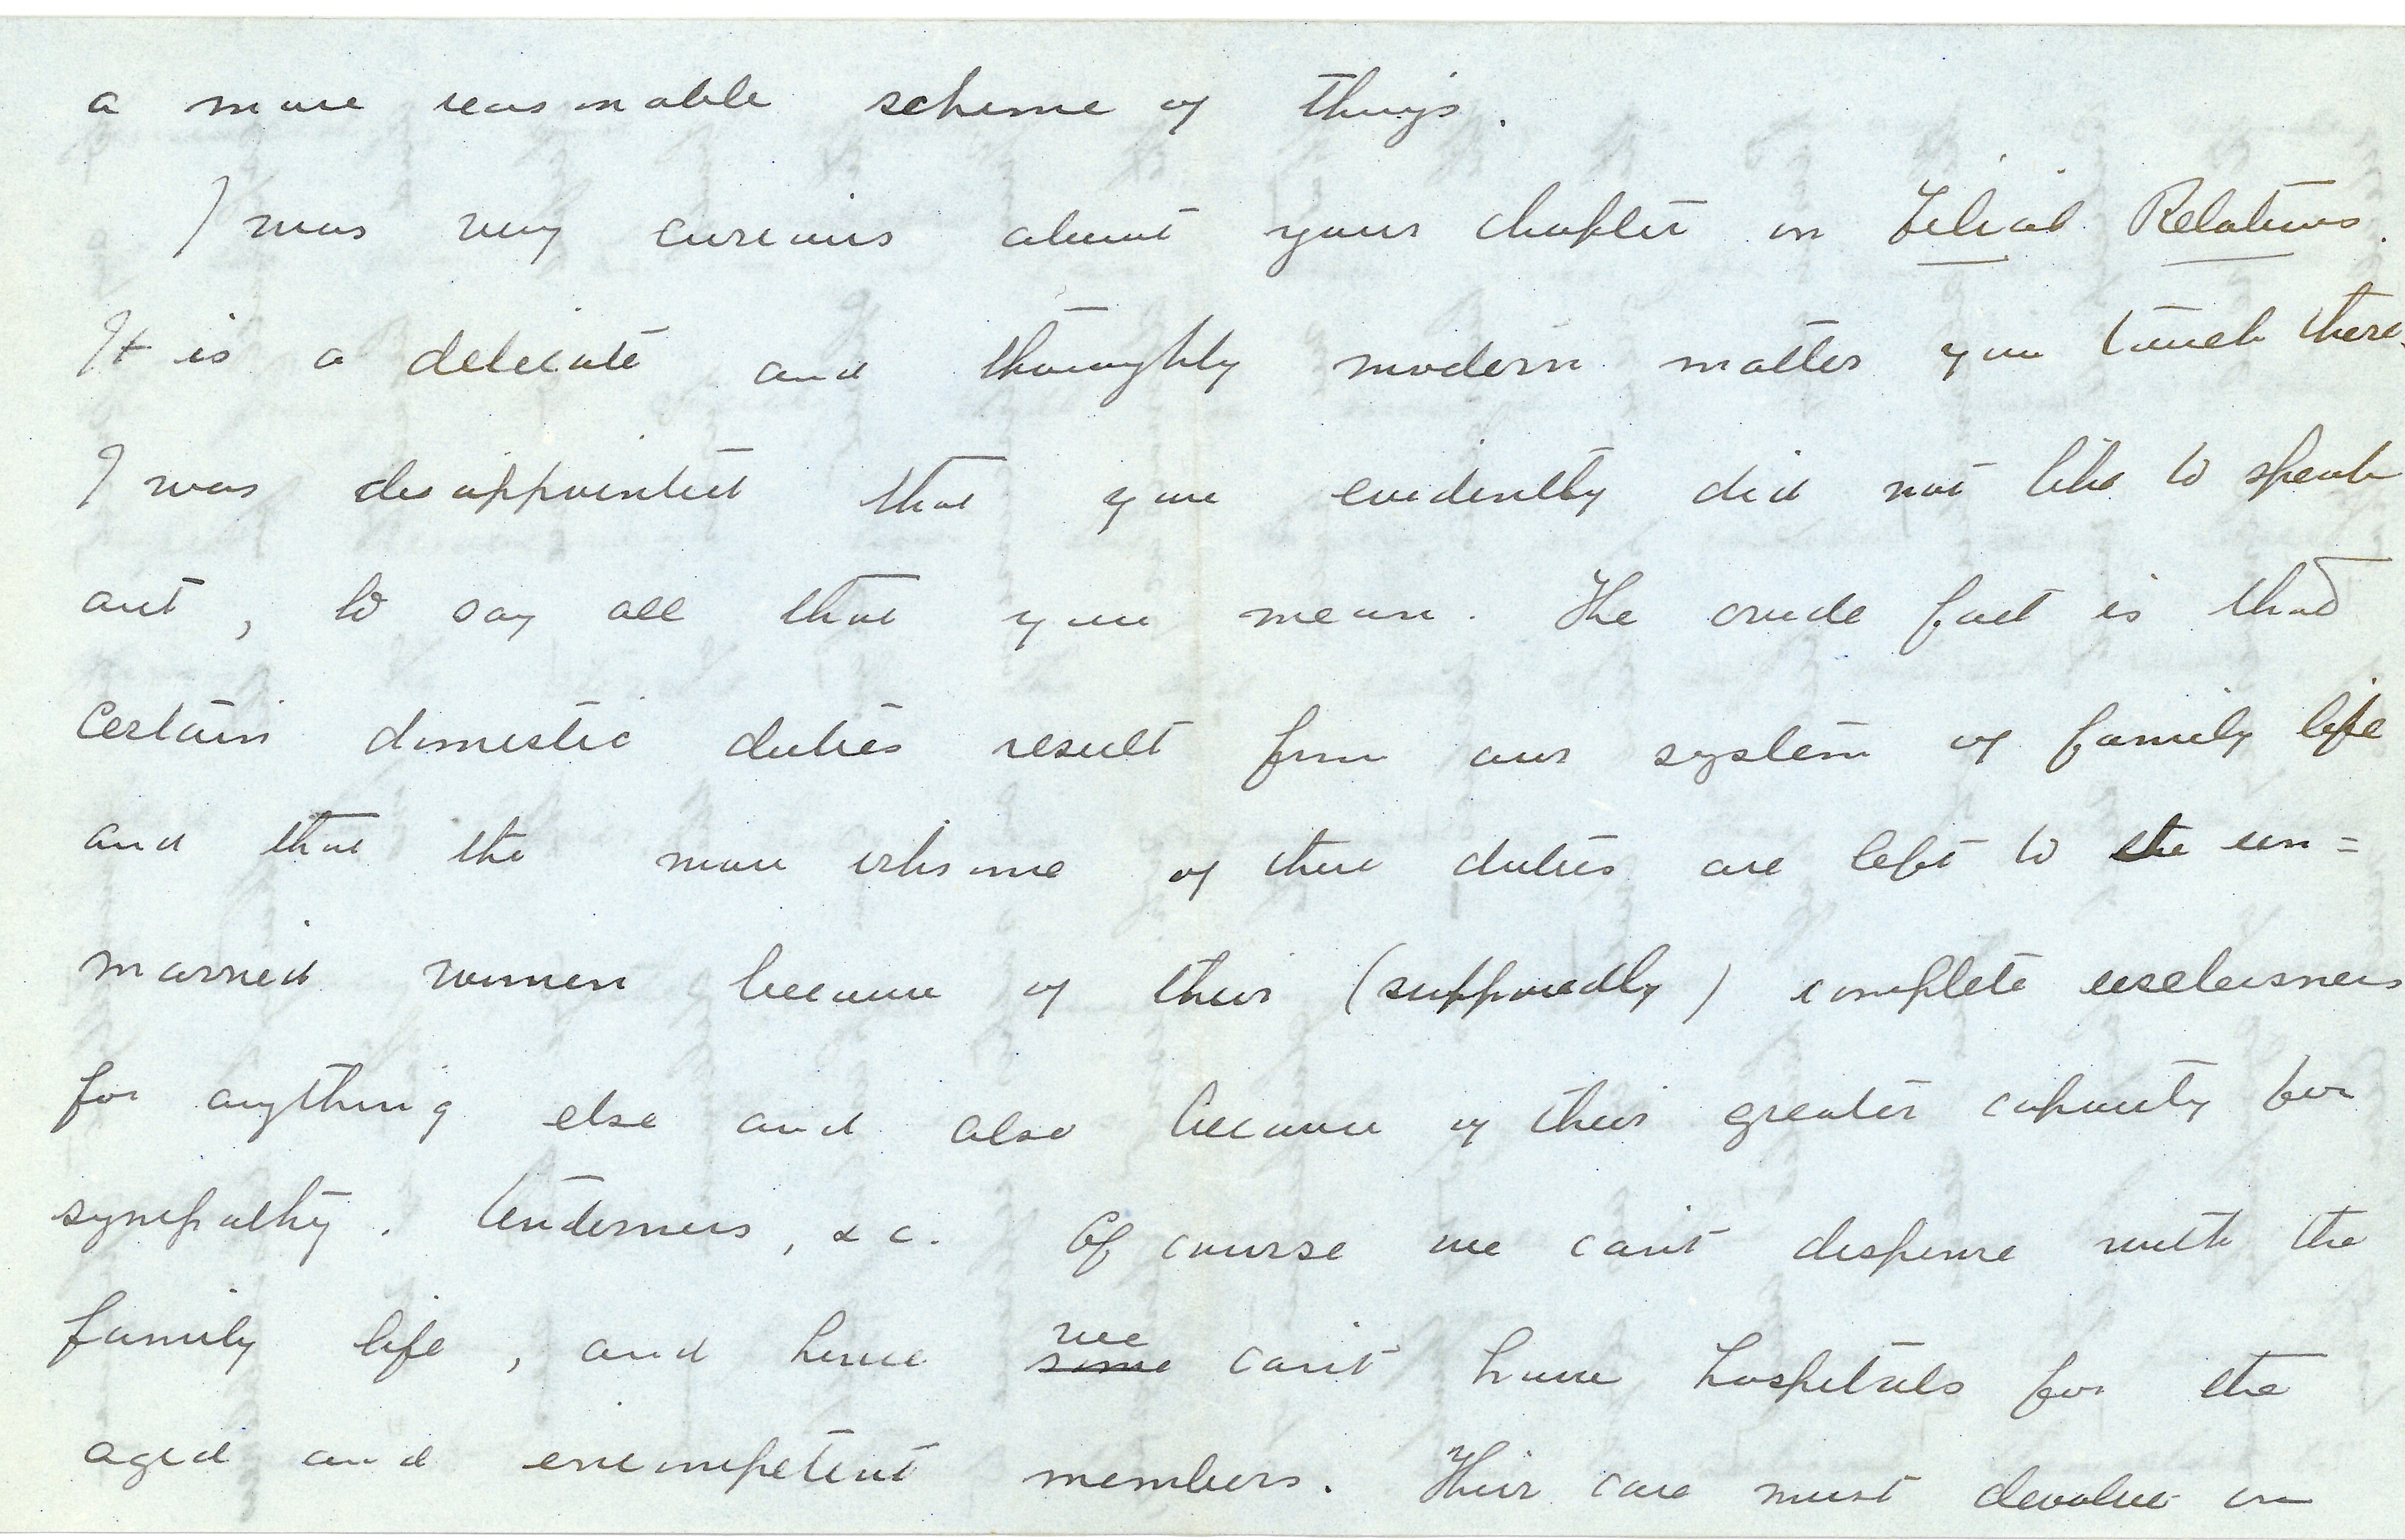 a more reasonable scheme of things.
I was very curious about your chapter on Filial Relations.
It is a delicate and thoroughly modern matter you touch there.
I was disappointed that you evidently did not like to speak
out, to say all that you mean. The crude fact is that
certain domestic duties result from our system of family life
and that the more irksome of these duties are left to the un=
married women because of their (supposedly) complete uselessness
for anything else and also because of their greater capacity for
sympathy. tenderness, &c. Of course we can't dispense with the
family life, and hence we some can't have hospitals for the
aged and incompetent members. Their care must devolve on